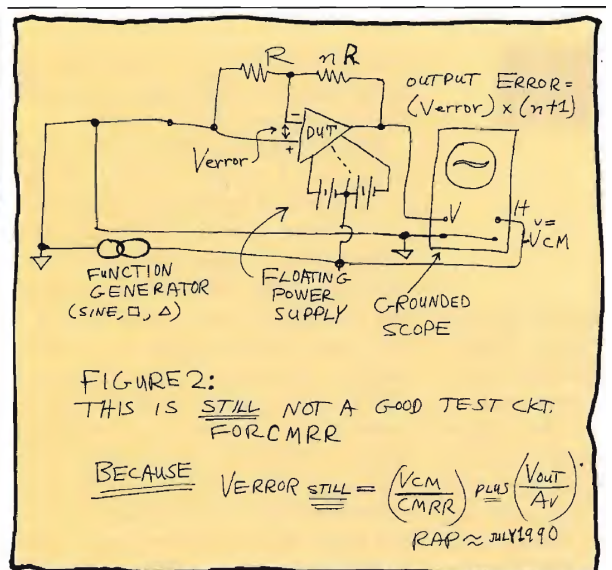 R
nR
OUTPUT ERROR=
(Verror) x (n+1)
-
+
DUT
Verror
V
H
V=
-VCM
FUNCTION
GENERATOR
(SINE, □, Δ)
FLOATING
POWER
SUPPLY
GROUNDED
SCOPE
FIGURE 2:
THIS IS STILL NOT A GOOD TEST CKT.
FOR CMRR
BECAUSE VERROR STILL = (VCM/CMRR) PLUS (VOUT/AV).
RAP ≈ JULY 1990